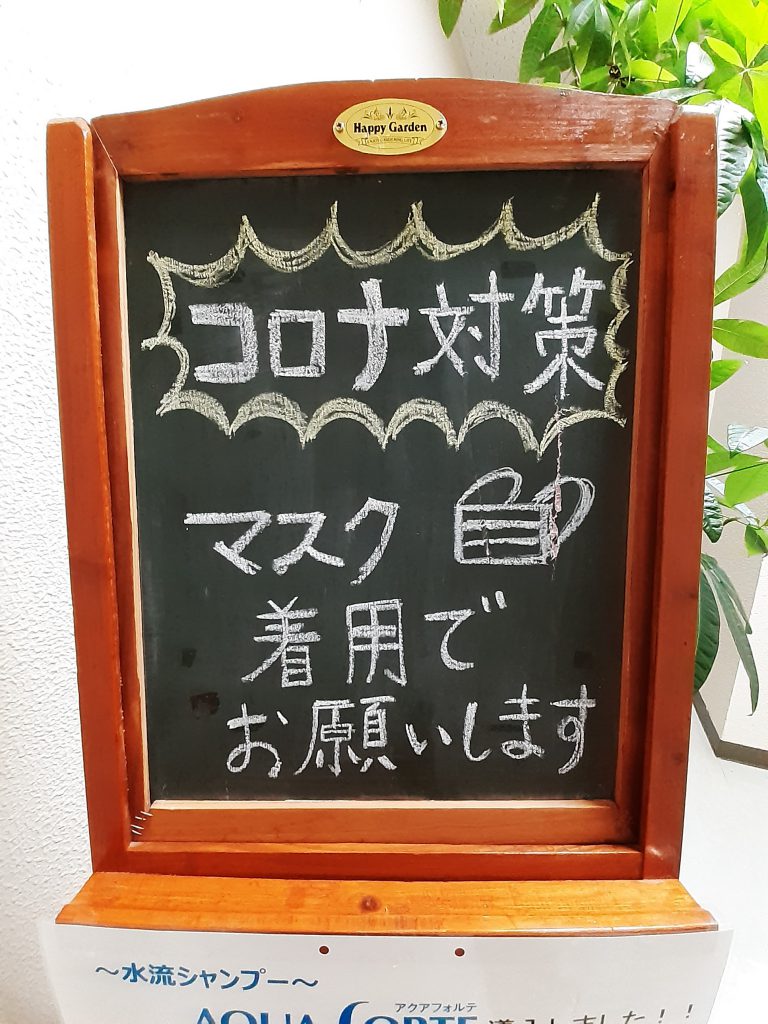 Happy Garden
コロナ対策
マスク
着用で
お願いします
～水流シャンプー～
アクアフォルテ
AQUA FORTE 導入しました！！